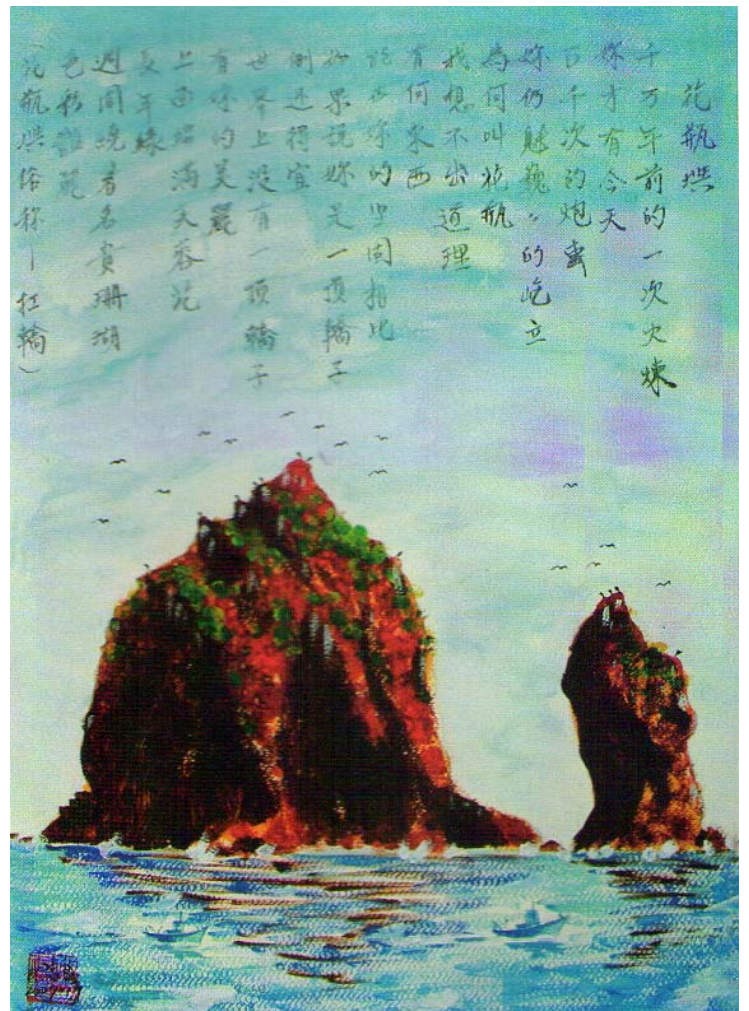 花瓶嶼
千万年前的一次火煉
妳才有今天
百千次的炮轟
妳仍魁巍々的屹立
為何叫花瓶
我想不出道理
有何東西
能与妳的坚固相比
如果說妳是一頂轎子
倒还得宜
世界上没有一頂轎子
有妳的美麗
上面插滿天蓉花
長年綠
週囲繞着名貴珊瑚
色彩艷麗
(花瓶嶼俗称－扛轎)